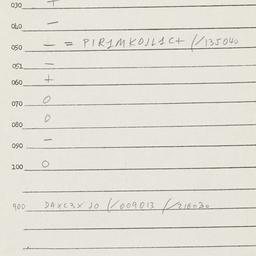 030 +
040 —
050 — = PIR1MKOJL1C+ (/135040
051 —
060 +
070 0
080 0
090 —
100 0
900 DAXC3X20 (/009013 /218020